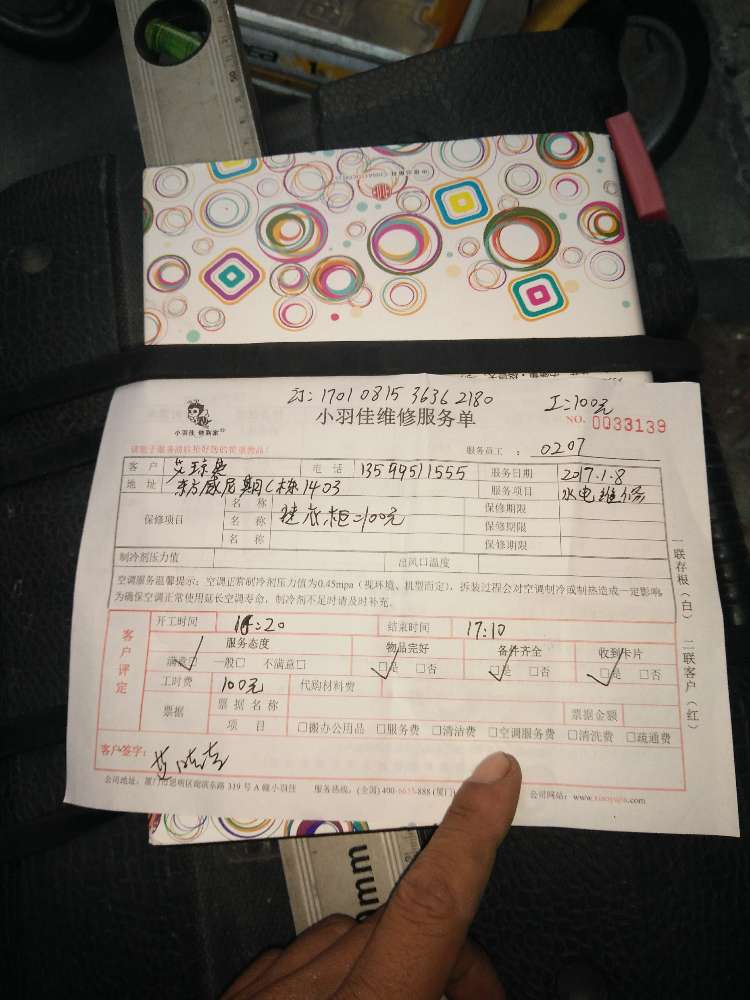 订:1701 0815 3636 2180 工:100元
小羽佳 修到家
小羽佳维修服务单 NO. 0033139
服务员工 : 0207
客 户 电 话 13599511555 服务日期 2017.1.8
地 址 东方威尼 期C栋1403 服务项目 水电维修
保修项目 名 称 保修期限
名 称 =100元 保修期限
名 称 保修期限
制冷剂压力值 出风口温度
空调服务温馨提示:空调正常制冷剂压力值为0.45mpa(视环境、机型而定),拆装过程会对空调制冷或制热造成一定影响,
为确保空调正常使用延长空调寿命,制冷剂不足时请及时补充。
客户评定
开工时间 结束时间 17:10
服务态度 物品完好 备件齐全 收到卡片
满意□ 一般□ 不满意□ □是 □否 □是 □否 □是 □否
工时费 100元 代购材料费
票据 票据名称 票据金额
项 目 □搬办公用品 □服务费 □清洁费 □空调服务费 □清洗费 □疏通费
客户签字:
公司地址:厦门市思明区湖滨东路 319 号 A 幢小羽佳 服务热线:(全国)400- -888(厦门) 公司网站:www.xiaoyujia.com
一联存根(白) 二联客户(红)
mm